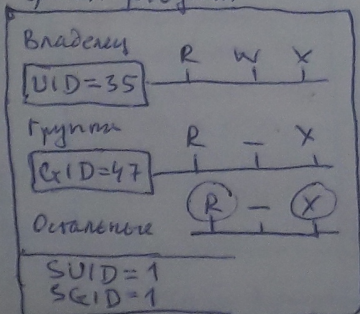 Владелец
R W X
UID=35
Группа
R — X
GID=47
R — X
Остальные
SUID=1
SGID=1